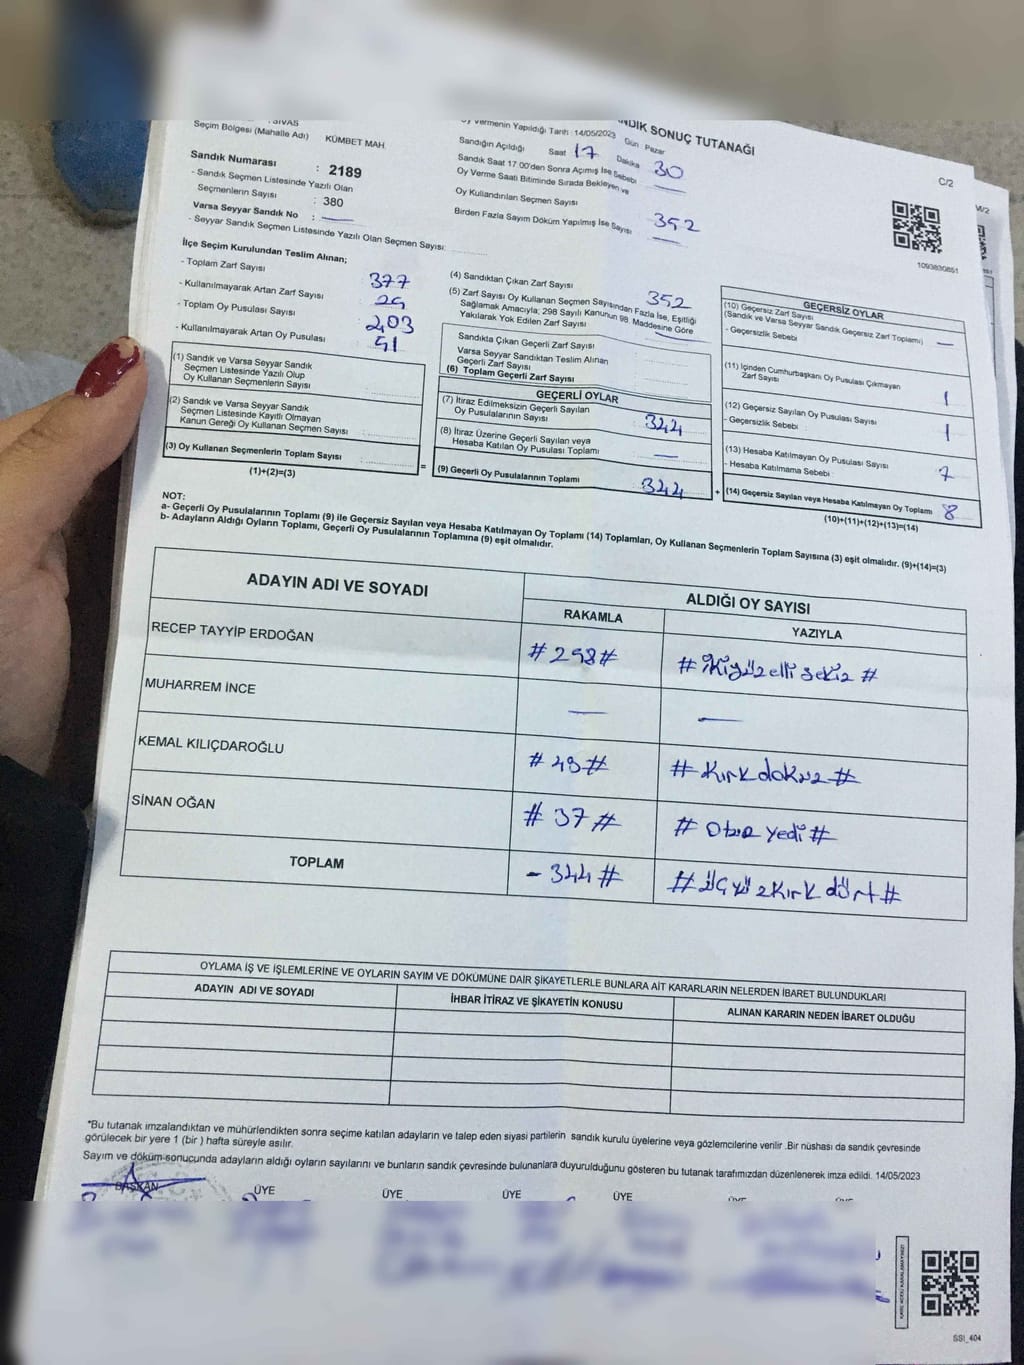 SİVAS
Seçim Bölgesi (Mahalle Adı) KÜMBET MAH.
Sandık Numarası : 2189
- Sandık Seçmen Listesinde Yazılı Olan
Seçmenlerin Sayısı : 380
Varsa Seyyar Sandık No : —
- Seyyar Sandık Seçmen Listesinde Yazılı Olan Seçmen Sayısı:
SONUÇ TUTANAĞI
Oy Vermenin Yapıldığı Tarih : 14/05/2023 Gün : Pazar
Sandığın Açıldığı Saat 17 Dakika 30
Sandık Saat 17.00'den Sonra Açımış İse Sebebi —
Oy Verme Saati Bitiminde Sırada Bekleyen ve
Oy Kullandırılan Seçmen Sayısı 352
Birden Fazla Sayım Döküm Yapılmış İse Sayısı —
C/2
1093830851
M/2
İlçe Seçim Kurulundan Teslim Alınan;
- Toplam Zarf Sayısı 377
- Kullanılmayarak Artan Zarf Sayısı
- Toplam Oy Pusulası Sayısı 403
- Kullanılmayarak Artan Oy Pusulası 51
(1) Sandık ve Varsa Seyyar Sandık
Seçmen Listesinde Yazılı Olup
Oy Kullanan Seçmenlerin Sayısı
(2) Sandık ve Varsa Seyyar Sandık
Seçmen Listesinde Kayıtlı Olmayan
Kanun Gereği Oy Kullanan Seçmen Sayısı
(3) Oy Kullanan Seçmenlerin Toplam Sayısı
(1)+(2)=(3)
=
(4) Sandıktan Çıkan Zarf Sayısı 352
(5) Zarf Sayısı Oy Kullanan Seçmen Sayısından Fazla İse, Eşitliği
Sağlamak Amacıyla; 298 Sayılı Kanunun 98. Maddesine Göre
Yakılarak Yok Edilen Zarf Sayısı —
Sandıkta Çıkan Geçerli Zarf Sayısı
Varsa Seyyar Sandıktan Teslim Alınan
Geçerli Zarf Sayısı
(6) Toplam Geçerli Zarf Sayısı
GEÇERLİ OYLAR
(7) İtiraz Edilmeksizin Geçerli Sayılan
Oy Pusulalarının Sayısı 344
(8) İtiraz Üzerine Geçerli Sayılan veya
Hesaba Katılan Oy Pusulası Toplamı —
(9) Geçerli Oy Pusulalarının Toplamı 344
+
GEÇERSİZ OYLAR
(10) Geçersiz Zarf Sayısı
(Sandık ve Varsa Seyyar Sandık Geçersiz Zarf Toplamı) —
- Geçersizlik Sebebi
(11) İçinden Cumhurbaşkanı Oy Pusulası Çıkmayan
Zarf Sayısı 1
(12) Geçersiz Sayılan Oy Pusulası Sayısı 1
- Geçersizlik Sebebi :
(13) Hesaba Katılmayan Oy Pusulası Sayısı 7
- Hesaba Katılmama Sebebi :
(14) Geçersiz Sayılan veya Hesaba Katılmayan Oy Toplamı 8
(10)+(11)+(12)+(13)=(14)
NOT:
a- Geçerli Oy Pusulalarının Toplamı (9) ile Geçersiz Sayılan veya Hesaba Katılmayan Oy Toplamı (14) Toplamları, Oy Kullanan Seçmenlerin Toplam Sayısına (3) eşit olmalıdır. (9)+(14)=(3)
b- Adayların Aldığı Oyların Toplamı, Geçerli Oy Pusulalarının Toplamına (9) eşit olmalıdır.
ADAYIN ADI VE SOYADI ALDIĞI OY SAYISI
RAKAMLA YAZIYLA
RECEP TAYYİP ERDOĞAN #258# #ikiyüzelli sekiz#
MUHARREM İNCE — —
KEMAL KILIÇDAROĞLU #49# #kırkdokuz#
SİNAN OĞAN #37# #otuz yedi#
TOPLAM - 344# #üçyüzkırk dört#
OYLAMA İŞ VE İŞLEMLERİNE VE OYLARIN SAYIM VE DÖKÜMÜNE DAİR ŞİKAYETLERLE BUNLARA AİT KARARLARIN NELERDEN İBARET BULUNDUKLARI
ADAYIN ADI VE SOYADI İHBAR İTİRAZ VE ŞİKAYETİN KONUSU ALINAN KARARIN NEDEN İBARET OLDUĞU
*Bu tutanak imzalandıktan ve mühürlendikten sonra seçime katılan adayların ve talep eden siyasi partilerin sandık kurulu üyelerine veya gözlemcilerine verilir .Bir nüshası da sandık çevresinde
görülecek bir yere 1 (bir ) hafta süreyle asılır.
Sayım ve döküm sonucunda adayların aldığı oyların sayılarını ve bunların sandık çevresinde bulunanlara duyurulduğunu gösteren bu tutanak tarafımızdan düzenlenerek imza edildi. 14/05/2023
BAŞKAN ÜYE ÜYE ÜYE ÜYE ÜYE ÜYE
SSI_404